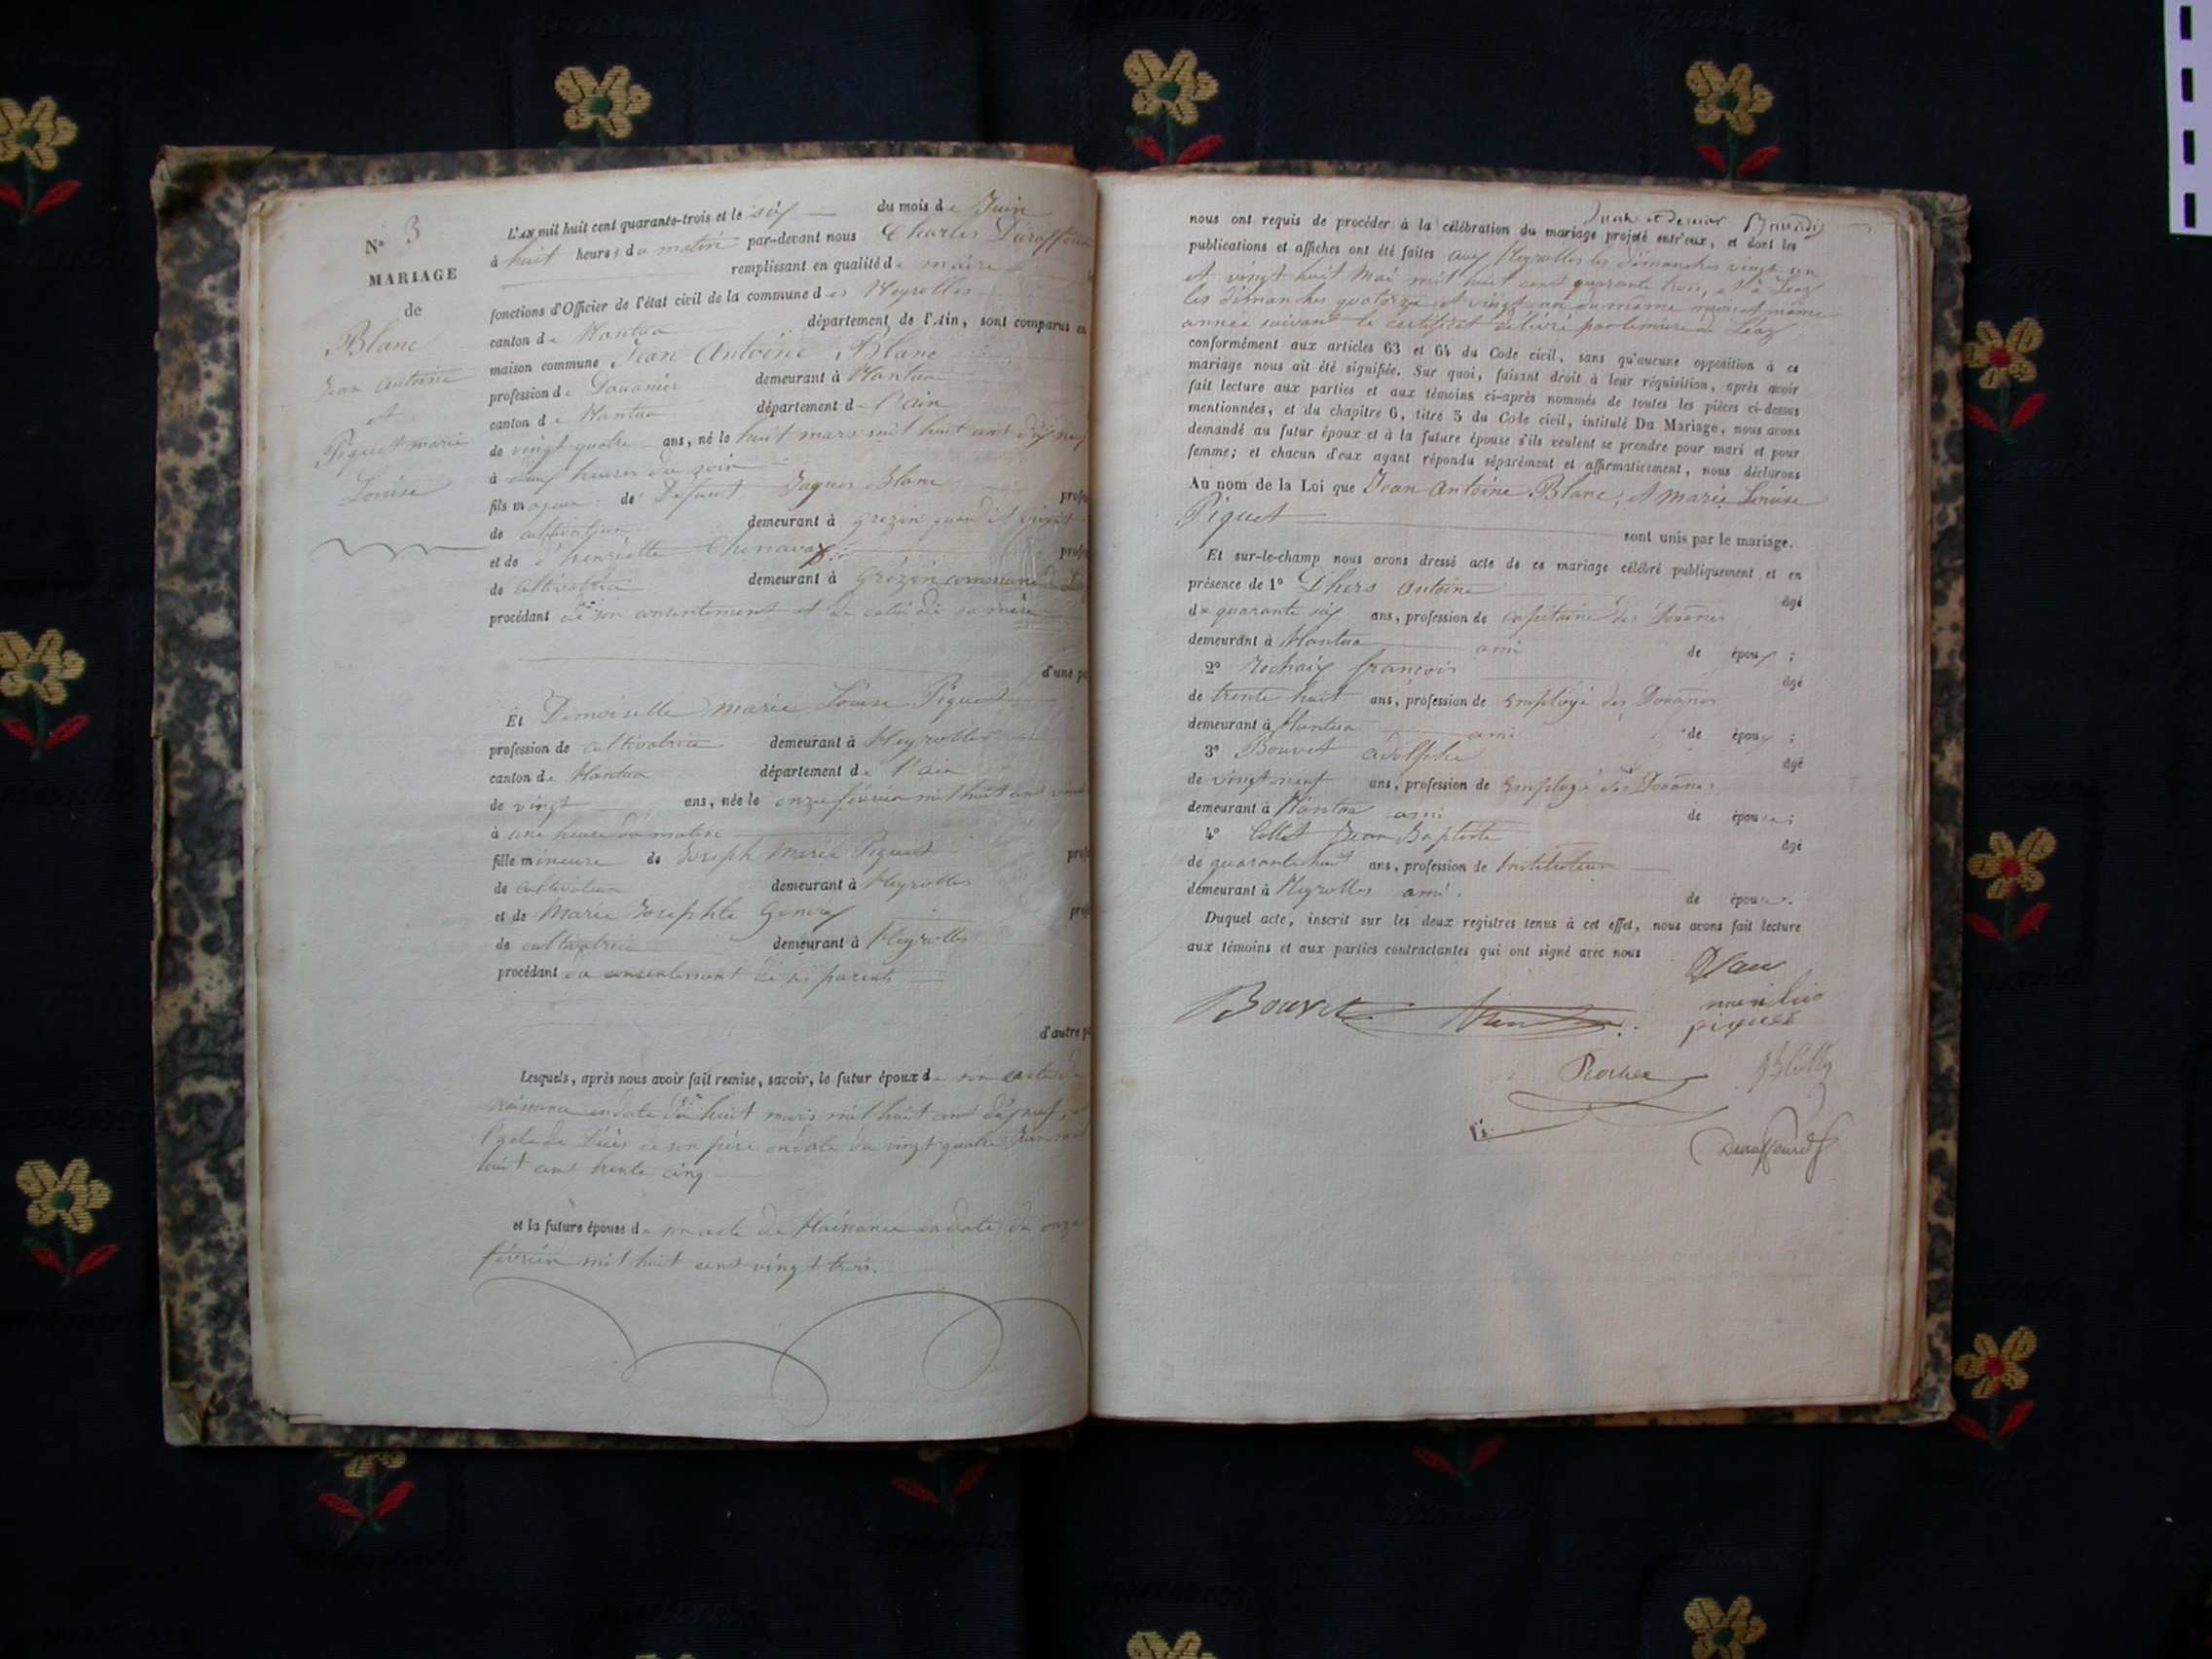 N° 3
MARIAGE
de
Blanc
Jean Antoine
et
Piquet marie
Louise
L'AN mil huit cent quarante-trois et le six du mois de Juin
à huit heures du matin par-devant nous Charles
remplissant en qualité de maire
fonctions d'Officier de l'état civil de la commune des Neyrolles
canton de Nantua département de l'Ain, sont comparus en
maison commune Jean Antoine Blanc
profession de Douanier demeurant à Nantua
canton de Nantua département de l'ain
de vingt quatre ans, né le huit mars mil huit cent dix neuf
à heures du soir
fils majeur de Défunt Jaques Blanc profe
de cultivateur demeurant à grezin quand il vivait
et de henriette Chenavax profe
de cultivatrice demeurant à Grézin commune de
procédant de son consentement et de celui de sa mère
d'une pa
Et Demoiselle marie Louise Piquet
profession de cultivatrice demeurant à Neyrolles
canton de Nantua département de l'ain
de vingt ans, née le onze février mil huit cent
à une heure du matin
fille mineure de Joseph Marie Piquet profe
de cultivateur demeurant à Neyrolles
et de Marie Josephte profe
de cultivatrice demeurant à Neyrolles
procédant du consentement de ses parents
d'autre pa
Lesquels, après nous avoir fait remise, savoir, le futur époux de son acte de
naissance en date du huit mars mil huit cent dix neuf,
l'acte de Décès de son père en date du vingt quatre
huit cent trente cinq
et la future épouse de son acte de Naissance en date du onze
février mil huit cent vingt trois.
nous ont requis de procéder à la célébration du mariage projeté entr'eux, et dont les
publications et affiches ont été faites aux Neyrolles les dimanches vingt un
et vingt huit Mai mil huit cent quarante trois, et à Leaz
les dimanches quatorze et vingt un du même mois et même
année suivant le certificat délivré par le maire de Leaz
conformément aux articles 63 et 64 du Code civil, sans qu'aucune opposition à ce
mariage nous ait été signifiée. Sur quoi, faisant droit à leur réquisition, après avoir
fait lecture aux parties et aux témoins ci-après nommés de toutes les pièces ci-dessus
mentionnées, et du chapitre 6, titre 5 du Code civil, intitulé Du Mariage, nous avons
demandé au futur époux et à la future épouse s'ils veulent se prendre pour mari et pour
femme; et chacun d'eux ayant répondu séparément et affirmativement, nous déclarons
Au nom de la Loi que Jean Antoine Blanc, et marie Louise
Piquet sont unis par le mariage.
Et sur-le-champ nous avons dressé acte de ce mariage célébré publiquement et en
présence de 1° Dhers Antoine âgé
de quarante six ans, profession de capitaine des Douanes
demeurant à Nantua ami de époux ;
2° françois âgé
de trente huit ans, profession de Employé des Douanes
demeurant à Nantua ami de époux ;
3° Bouvet adolphe âgé
de vingt neuf ans, profession de Employé des Douanes
demeurant à Nantua ami de épouse ;
4° Collet Jean Baptiste âgé
de quarante huit ans, profession de Instituteur
demeurant à Neyrolles ami de épouse.
Duquel acte, inscrit sur les deux registres tenus à cet effet, nous avons fait lecture
aux témoins et aux parties contractantes qui ont signé avec nous
Bouvet
piquet